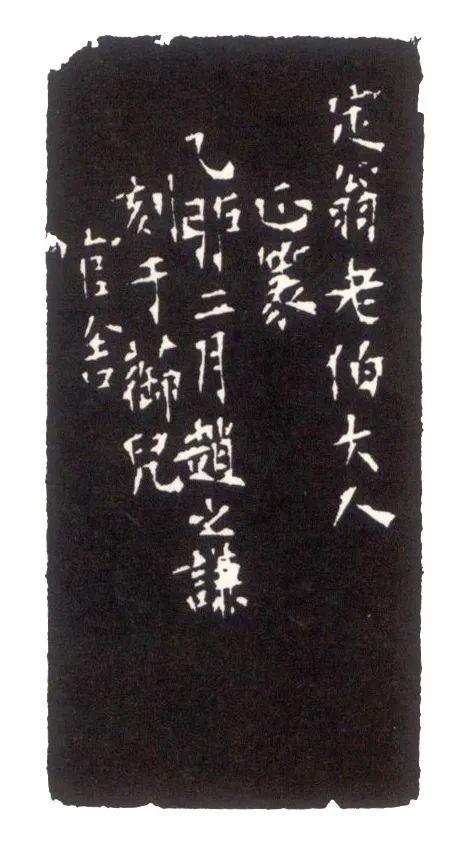 定翁老伯大人
正篆
己卯二月趙之謙
刻于蘜兒
官舍